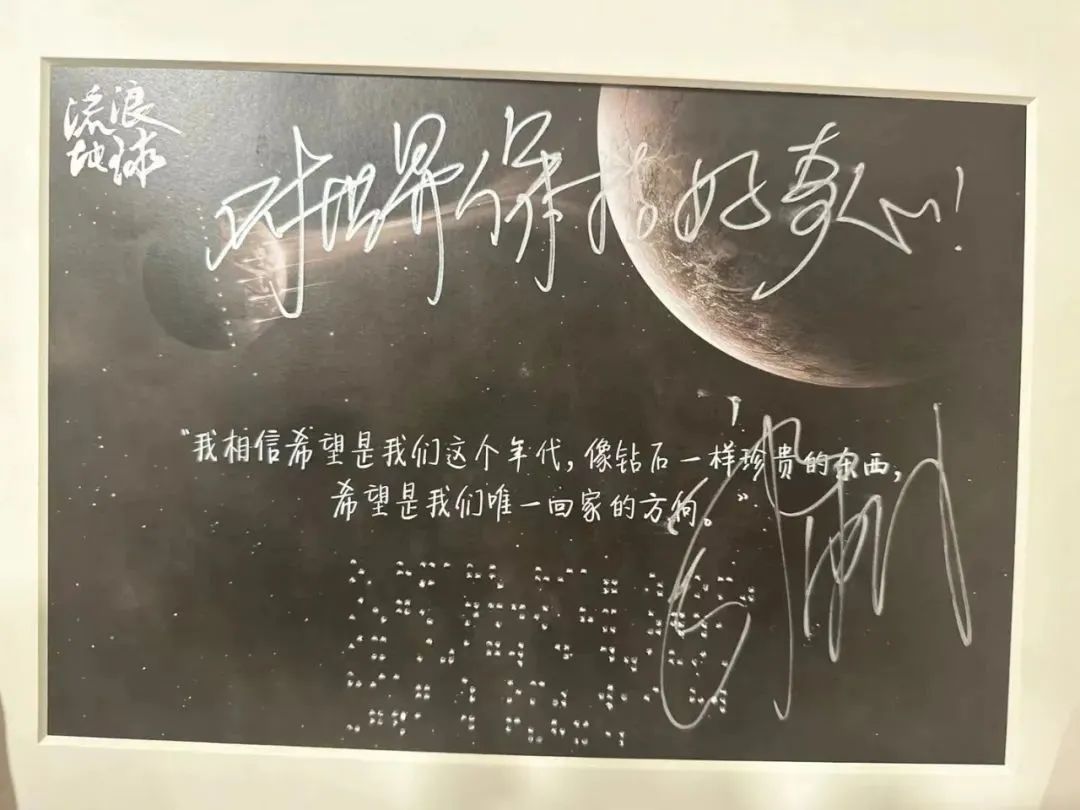 流浪
地球
对世界保持好奇心！
“我相信希望是我们这个年代，像钻石一样珍贵的东西，
希望是我们唯一回家的方向。”